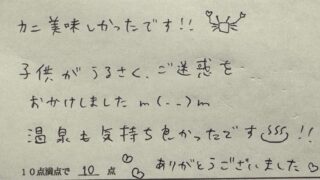 カニ美味しかったです!!
子供がうるさく、ご迷惑を
おかけしました m(..)m
温泉も気持ち良かったです!!
10点満点で 10 点 ありがとうございました